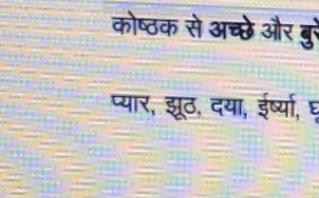 कोष्ठक से अच्छे और
प्यार, झूठ, दया, ईर्ष्या,